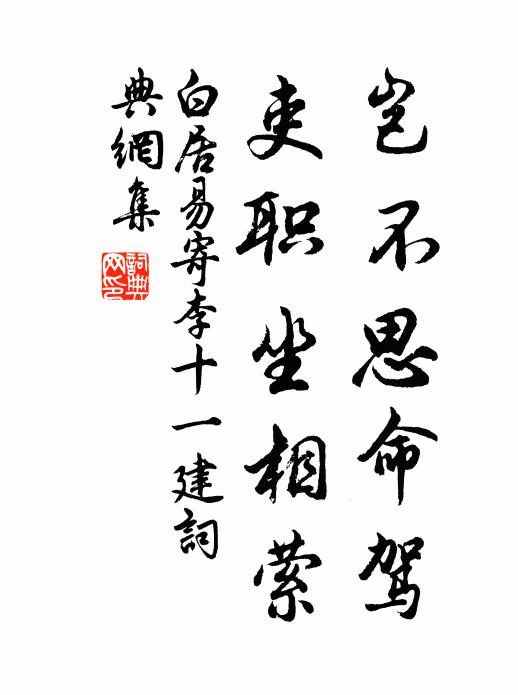 岂不思命驾
吏职坐相萦
白居易寄李十一建詞
典網集
詞典
网印